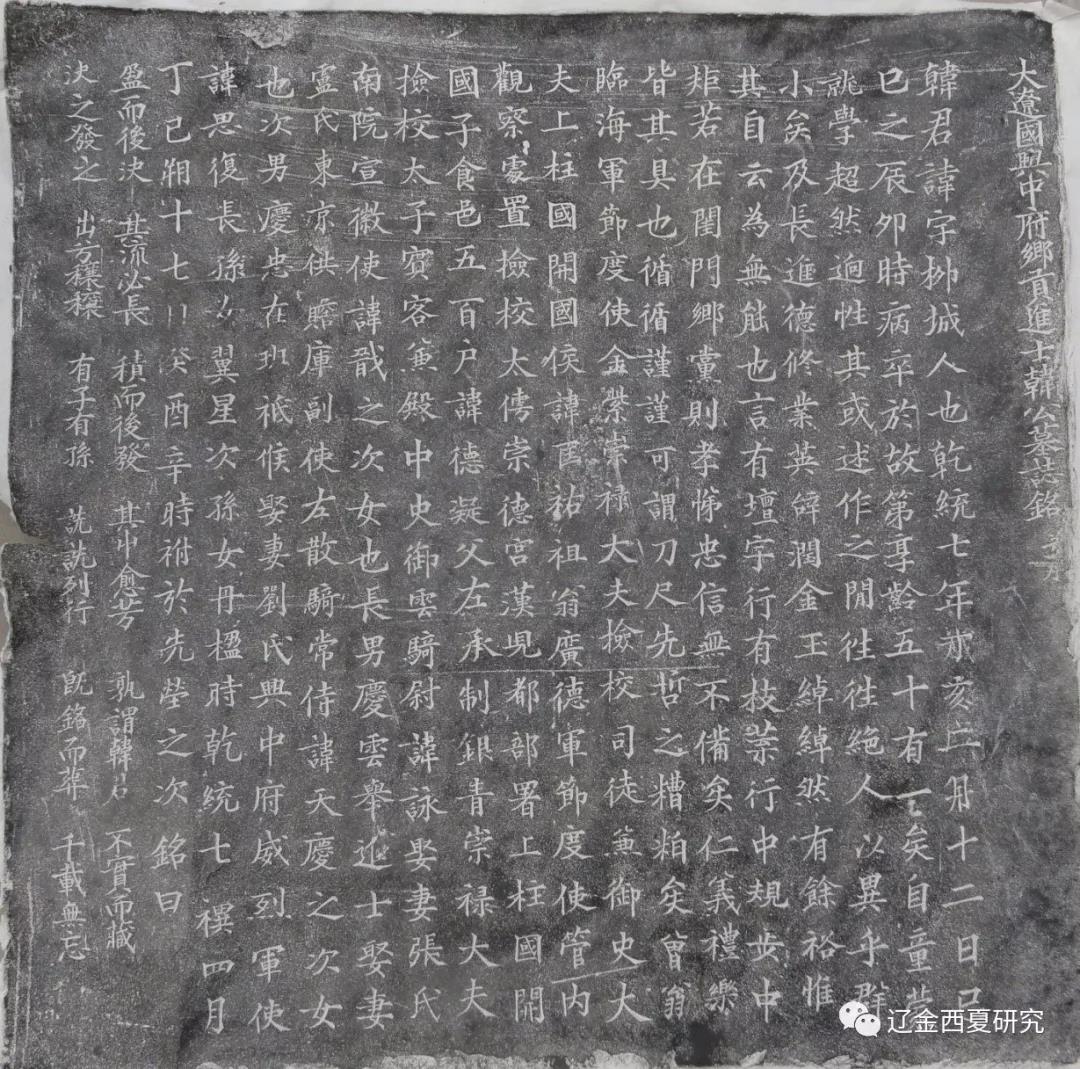 大遼國興中府鄉貢進士韓公墓誌銘
韓君諱字柳城人也乾統七年歲亥二月十二日己
巳之辰夘時病卒於故第享齡五十有一矣自童蒙
誂學超然逈性其或述作之閒徃徃絶人以異乎群
小矣及長進德修業英辭潤金玉綽綽然有餘裕惟
其自云為無能也言有壇宇行有枝葉行中規步中
矩若在閨門鄉黨則孝悌忠信無不備矣仁義禮樂
皆其具也循循謹謹可謂刀尺先哲之糟粕矣曾翁
臨海軍節度使金紫崇禄大夫撿校司徒兼御史大
夫上柱國開國侯諱匡祐祖翁廣德軍節度使管内
觀察處置撿校太傅崇德宮漢兒都部署上柱國開
國子食邑五百户諱德凝父左承制銀青崇禄大夫
撿校太子賓客兼殿中史御雲騎尉諱詠娶妻張氏
南院宣徽使諱戩之次女也長男慶雲舉進士娶妻
靈氏東京供贍庫副使左散騎常侍諱天慶之次女
也次男慶忠在班祗候娶妻劉氏興中府威烈軍使
諱思復長孫女翼星次孫女丹楹時乾統七禩四月
丁巳朔十七日癸酉辛時祔於先塋之次銘曰
盈而後決 其流必長 積而後發 其中愈芳 孰謂韓君 不實而藏
決之發之 出方穰穰 有子有孫 詵詵列行 既銘而葬 千載無忘
辽金西夏研究